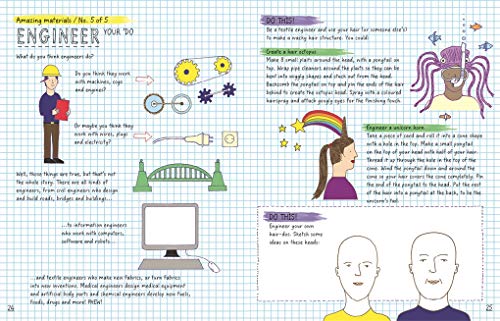 Amazing materials / No. 5 of 5
ENGINEER YOUR 'DO
What do you think engineers do?
Do you think they work
with machines, cogs
and engines?
Or maybe you think they
work with wires, plugs
and electricity?
Well, those things are true, but that's not
the whole story. There are all kinds of
engineers, from civil engineers who design
and build roads, bridges and buildings...
...to information engineers
who work with computers,
software and robots...
...and textile engineers who make new fabrics, or turn fabrics
into new inventions. Medical engineers design medical equipment
and artificial body parts and chemical engineers develop new fuels,
foods, drugs and more! PHEW!
24
DO THIS!
Be a textile engineer and use your hair (or someone else's)
to make a wacky hair structure. You could:
Create a hair octopus
Make 8 small plaits around the head, with a ponytail on
top. Wrap pipe cleaners around the plaits so they can be
bent into wiggly shapes and stick out from the head.
Backcomb the ponytail on top and pin the ends of the hair
behind to create the octopus head. Spray with a coloured
hairspray and attach googly eyes for the finishing touch.
Engineer a unicorn horn
Take a piece of card and roll it into a cone shape
with a hole in the top. Make a small ponytail
on the top of your head with half of your hair.
Thread it up through the hole in the top of the
cone. Wind the ponytail down and around the
cone so your hair covers the cone completely. Pin
the end of the ponytail to the head. Put the rest
of the hair into a ponytail at the back, to be the
unicorn's tail.
DO THIS!
Engineer your own
hair-dos. Sketch some
ideas on these heads:
25